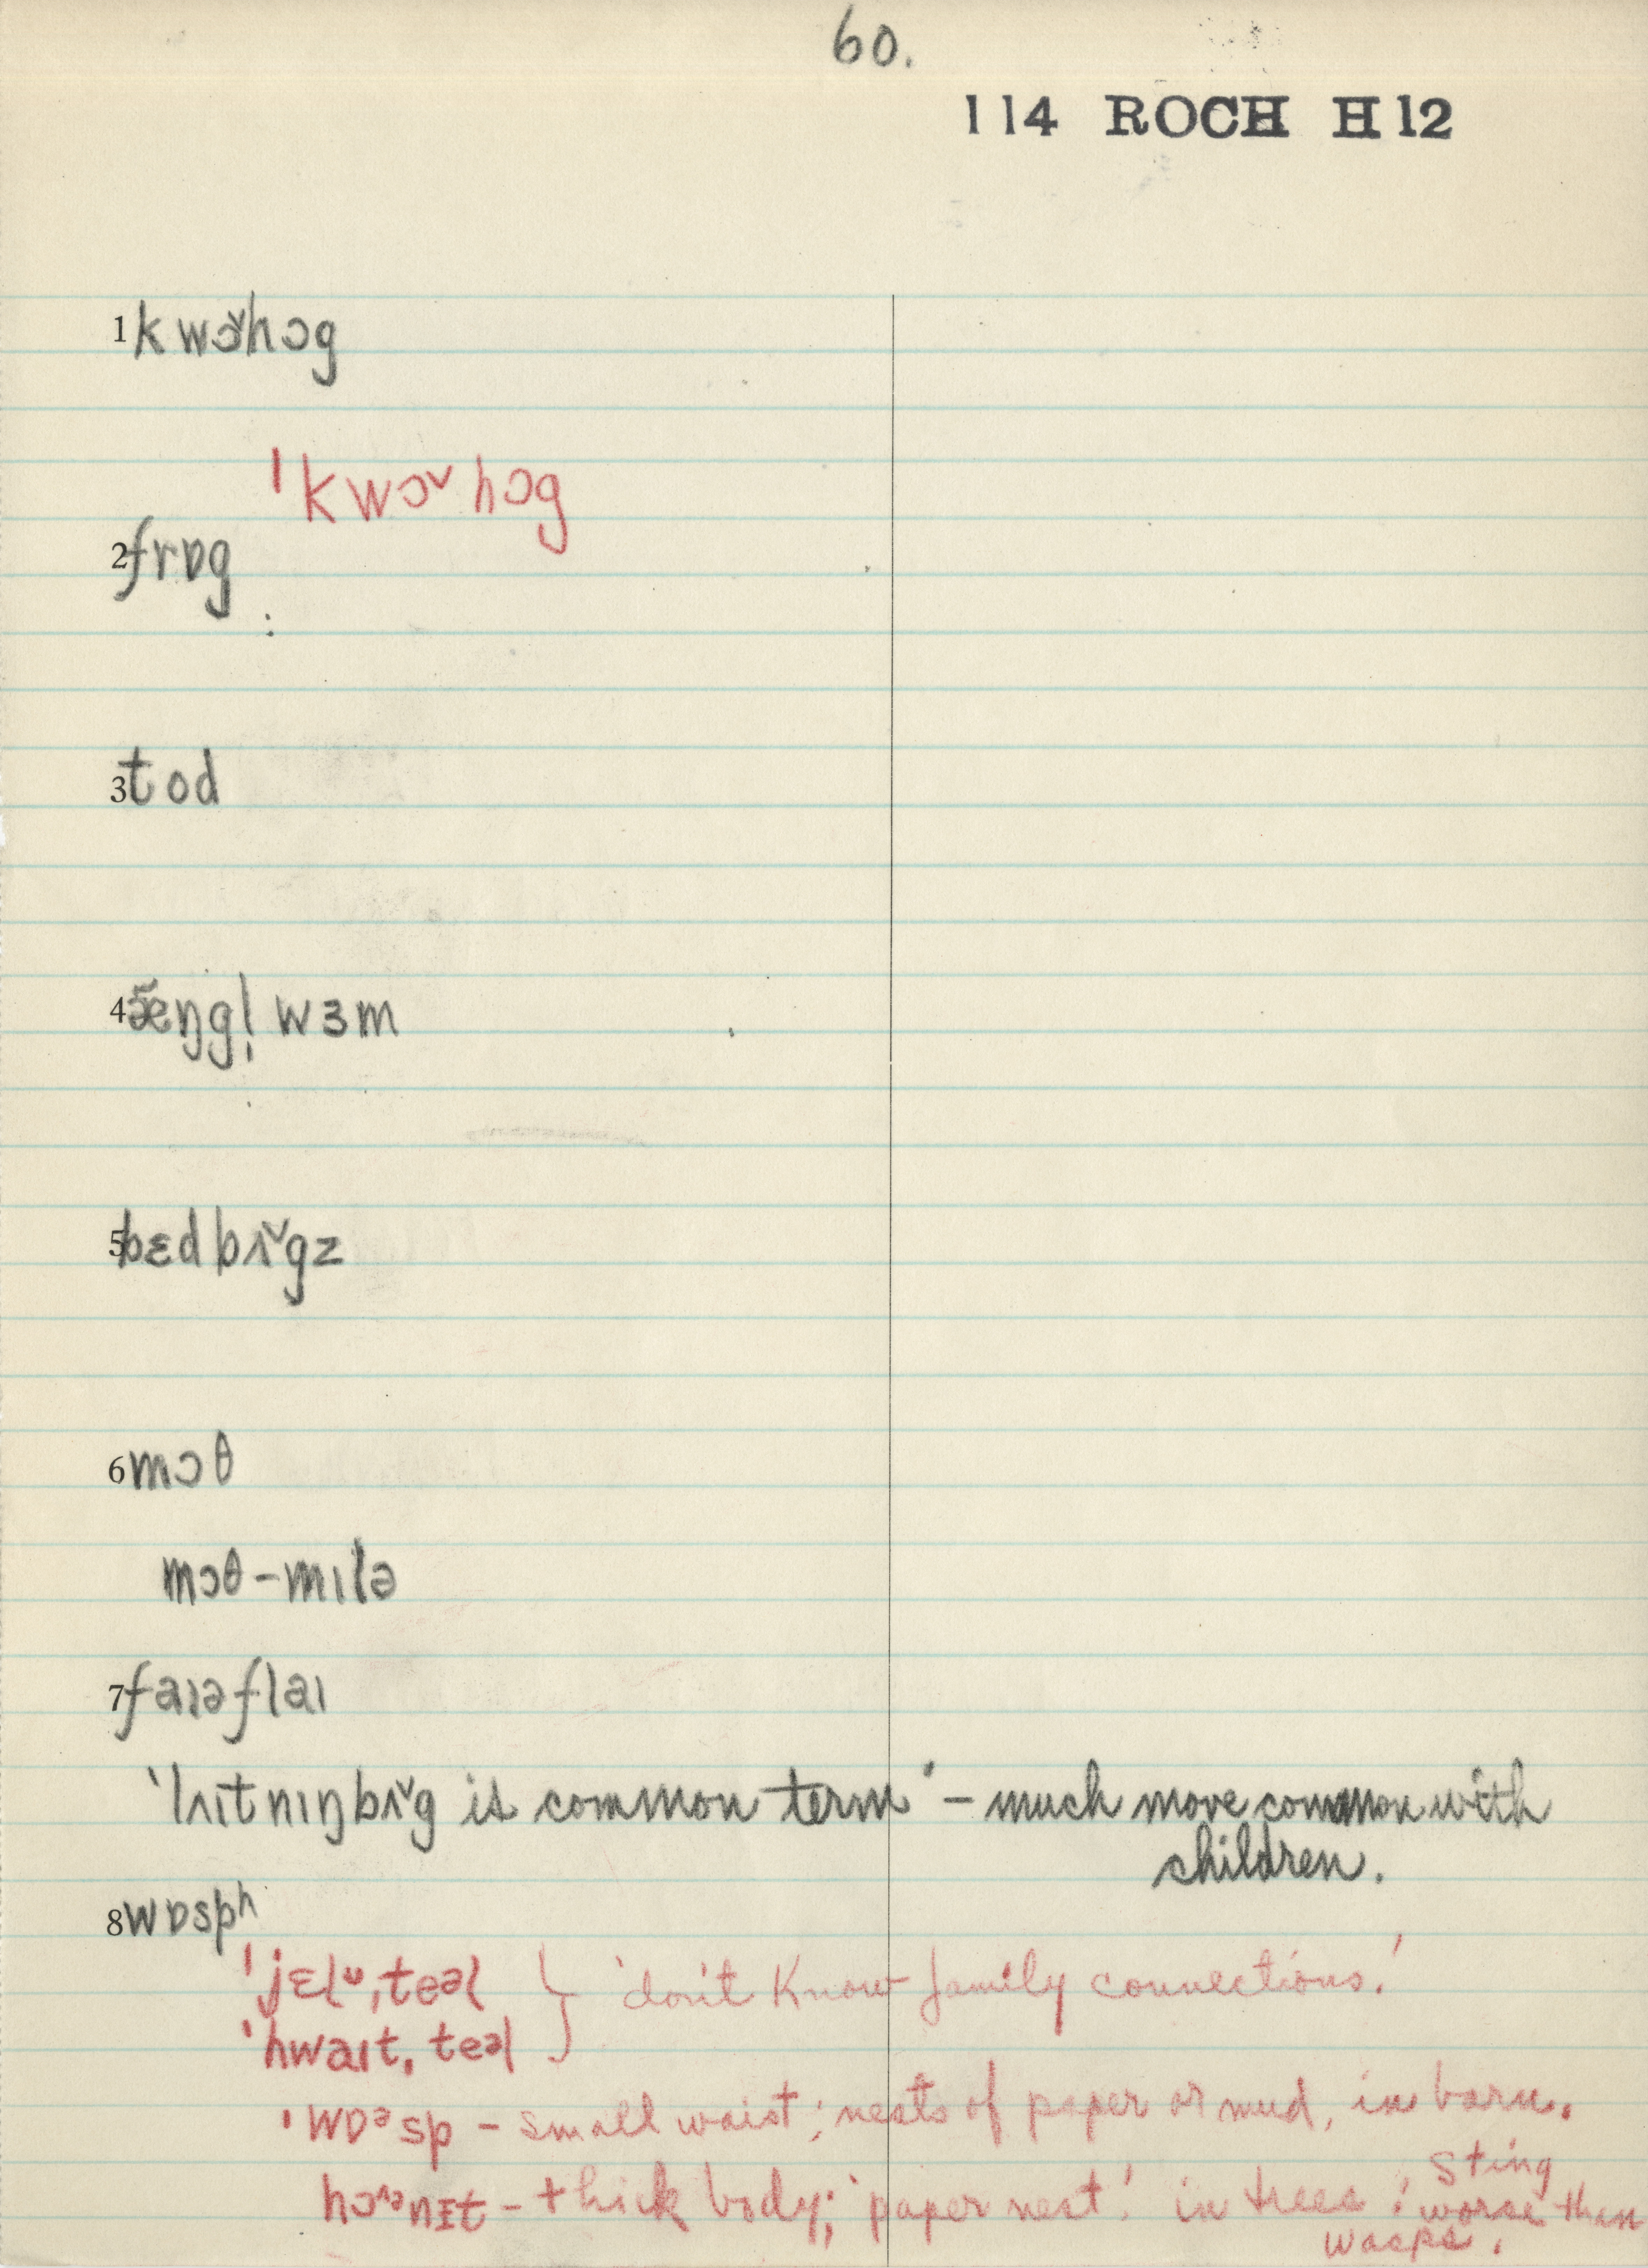 60.
114 ROCH H12
1 kwɔ˅hɔg
ˈkwɔ˅hɔg
2 frɒg
3 tod
4 æ̃ŋgl̩ wɜm
5 bɛdbʌ˅gz
6 mɔθ
mɔθ-mɪlə
7 faɪəflaɪ
'lʌɪtnɪŋbʌ˅g is common term' - much more common with
children.
8 wɒspʰ
ˈjɛlᶷˌteəl } 'don't know family connections.'
ˈhwaɪtˌteəl
ˈwɒᵊsp - small waist; nests of paper or mud, in barn.
hɔ˄ᵊnɪt - thick body; 'paper nest' in trees; sting
worse than
wasps.